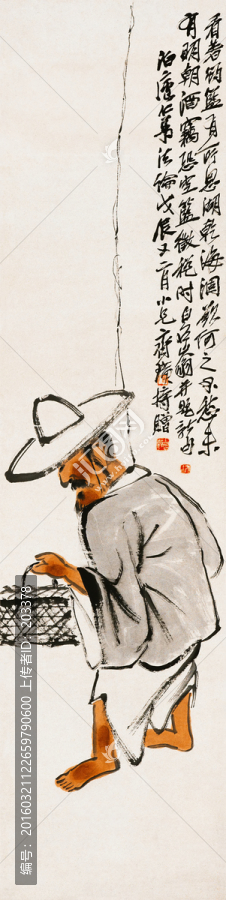 看著筠籃有所思湖乾海涸欲何之不愁未
有明朝酒竊恐空籃徵稅時白石山翁并題新句
泊廬仁弟法論戊辰又二月小兄齊璜持贈
编号：20160321122659790600 上传者ID：203378